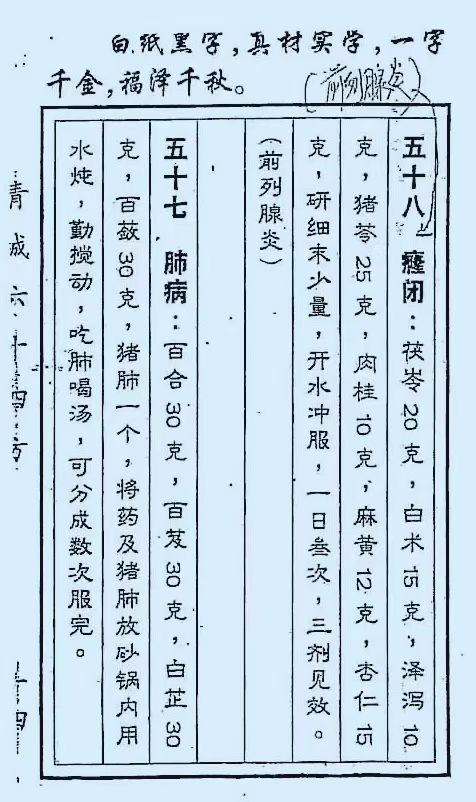 白纸黑字，真材实学，一字
千金，福泽千秋。
（前列腺炎）
五十八 癃闭：茯岑20克，白术15克，泽泻10
克，猪苓25克，肉桂10克，麻黄12克，杏仁15
克，研细末少量，开水冲服，一日叁次，三剂见效。
（前列腺炎）
五十七 肺病：百合30克，百芨30克，白芷30
克，百蔹30克，猪肺一个，将药及猪肺放砂锅内用
水炖，勤搅动，吃肺喝汤，可分成数次服完。
青城六十四方